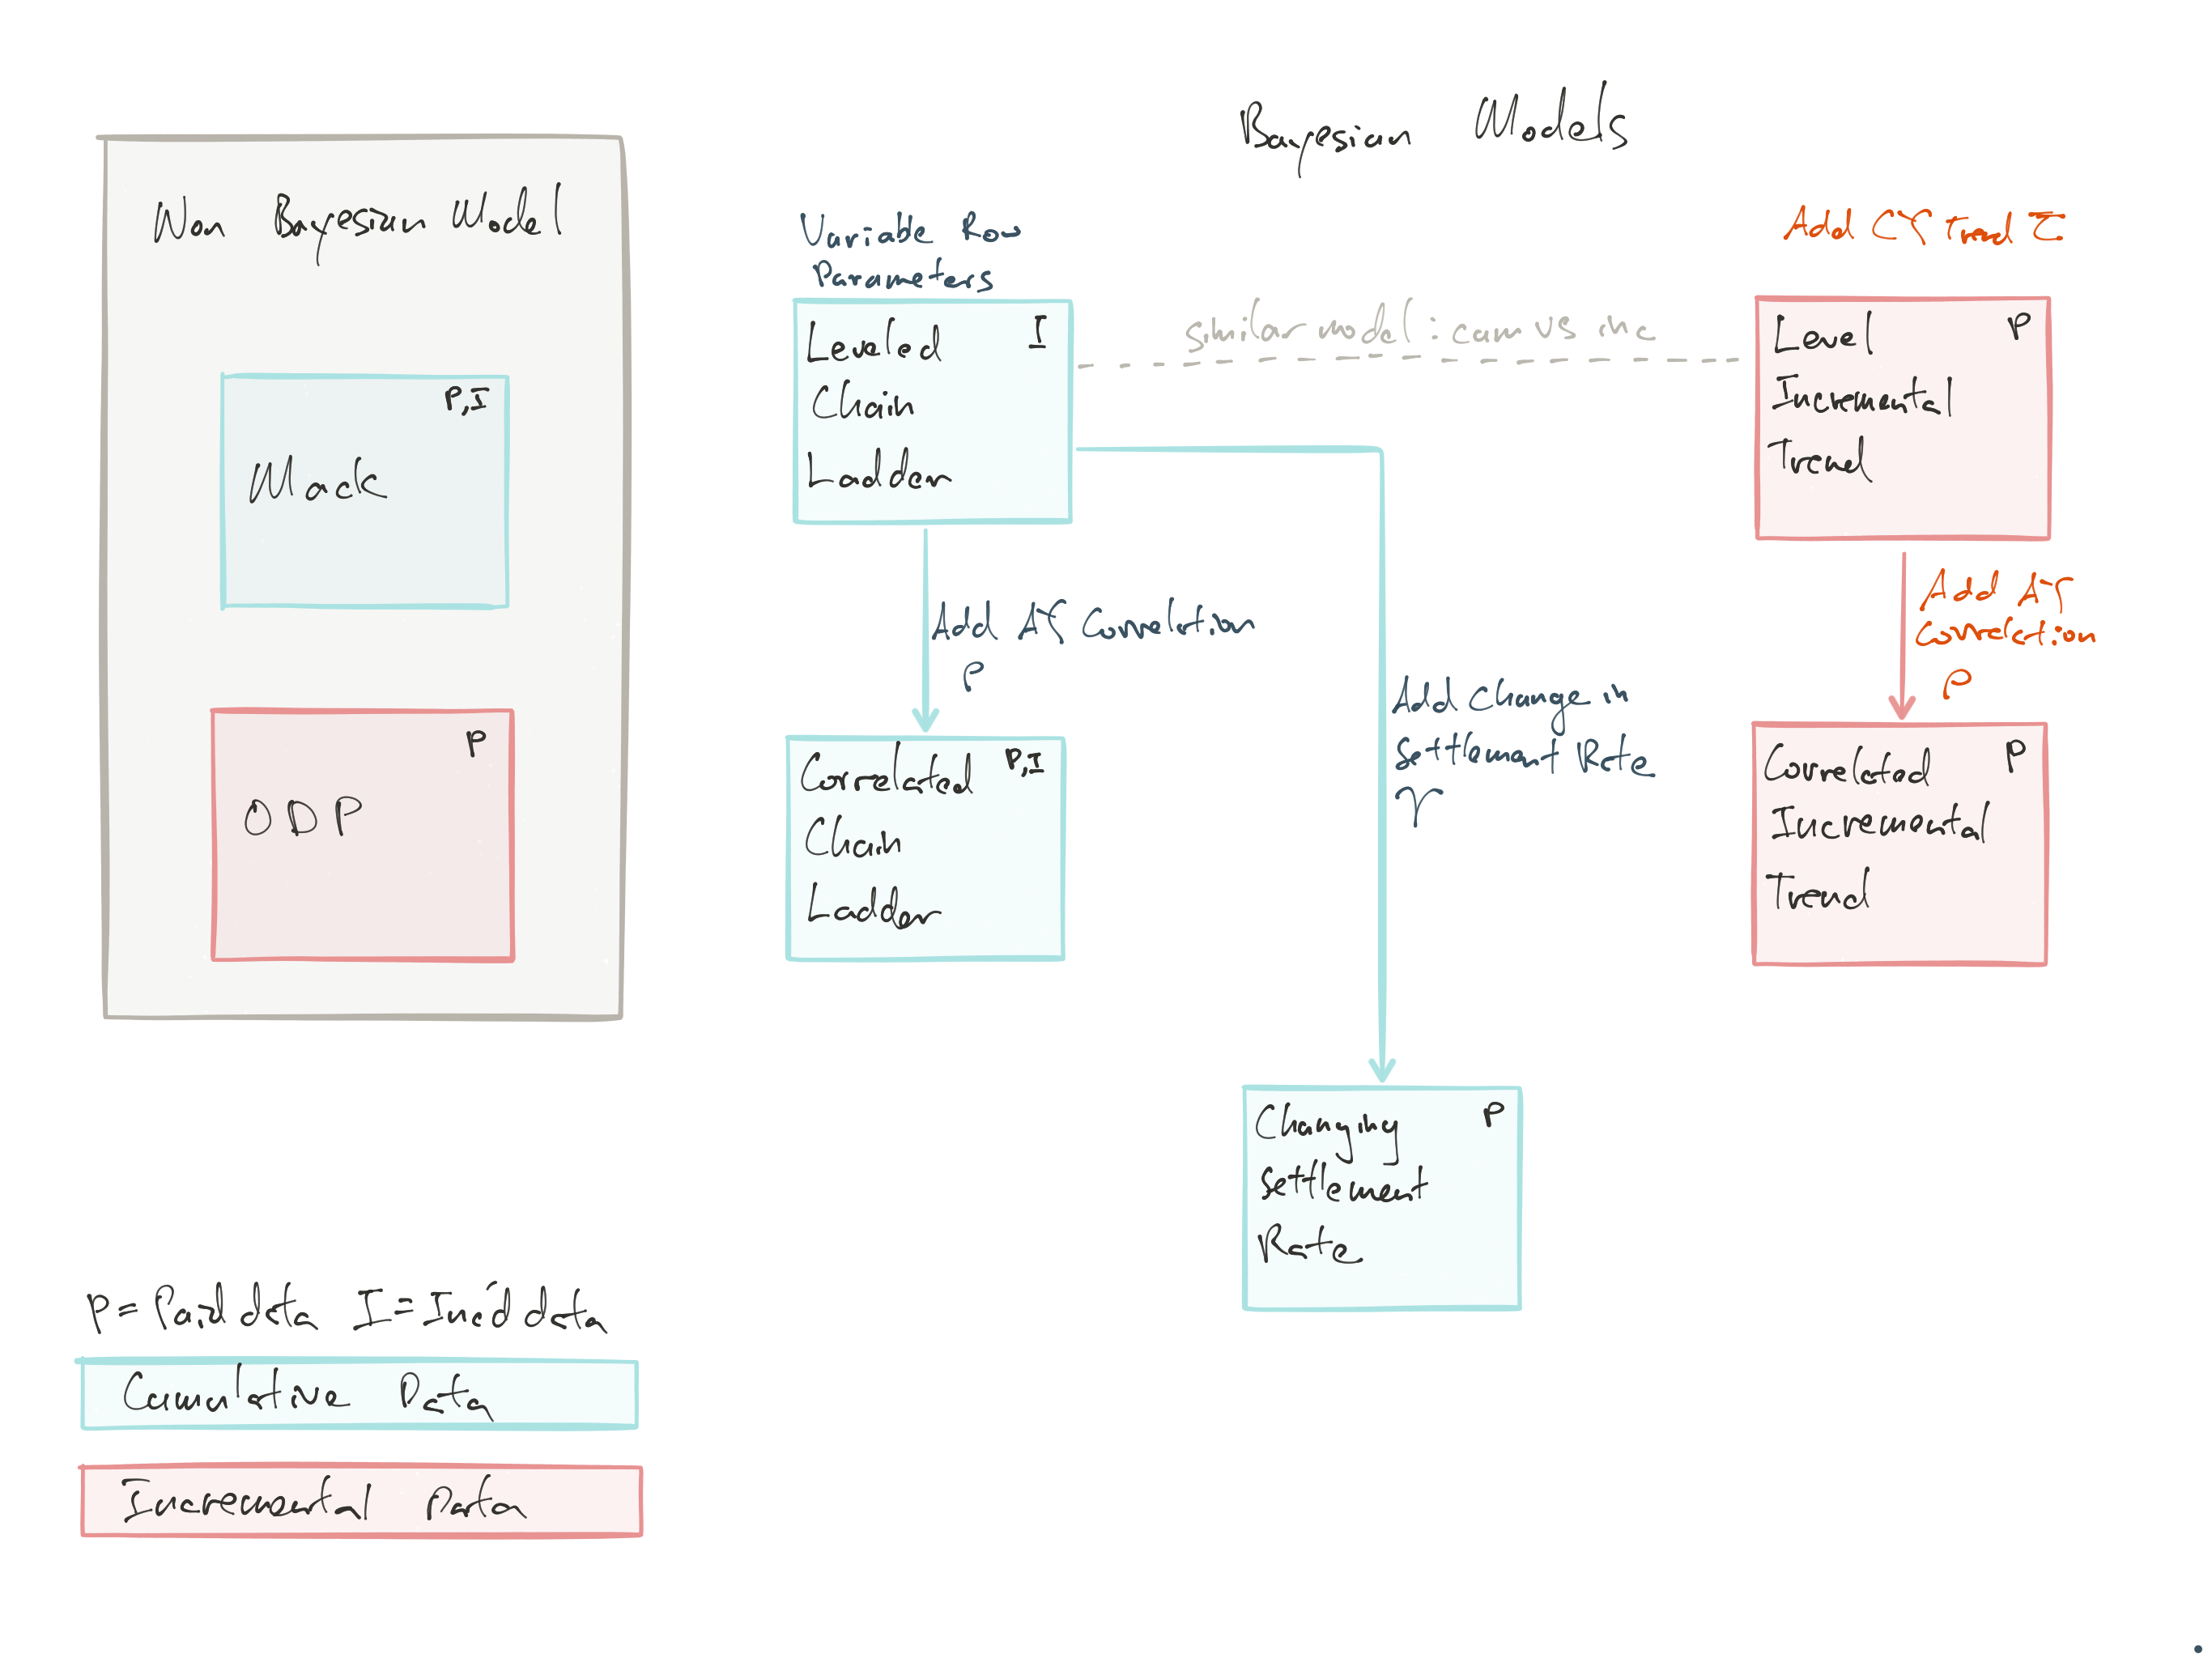 Bayesian Models
Non Bayesian Model
P,I
Mack
P
ODP
Variable Row
Parameters
Leveled I
Chain
Ladder
similar model: cum vs inc
Add CY Trend τ
Level P
Incremental
Trend
Add AY Correlation
ρ
Add Change in
Settlement Rate
γ
Add AY
Correlation
ρ
Correlated P,I
Chain
Ladder
Correlated P
Incremental
Trend
Changing P
Settlement
Rate
P = Paid data I = Inc'd data
Cumulative Data
Incremental Data